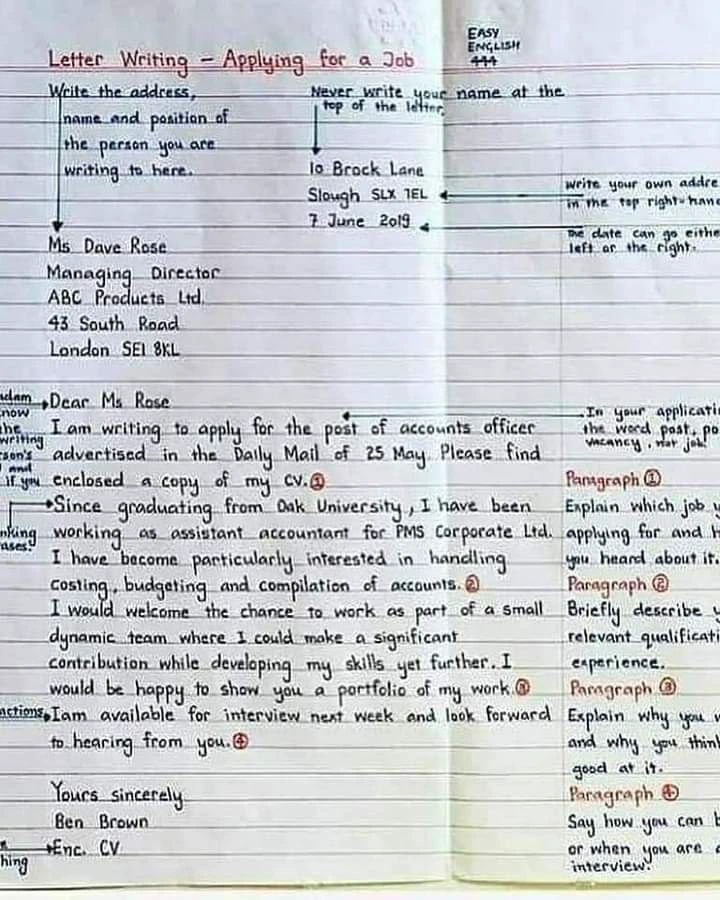 EASY
ENGLISH
444
Letter Writing – Applying for a Job
Write the address,
name and position of
the person you are
writing to here.
Never write your name at the
top of the letter.
10 Brock Lane
Slough SLX 7EL
7 June 2019
write your own addre
in the top right-hand
The date can go eithe
left or the right.
Ms Dave Rose
Managing Director
ABC Products Ltd.
43 South Road
London SE1 8KL
adam
now
the
writing
son's
and
if you
Dear Ms Rose
I am writing to apply for the post of accounts officer
advertised in the Daily Mail of 25 May. Please find
enclosed a copy of my CV.①
In your applicati
the word post, po
vacancy, not job!
nking
ases!
Since graduating from Oak University, I have been
working as assistant accountant for PMS Corporate Ltd.
I have become particularly interested in handling
costing, budgeting and compilation of accounts.②
I would welcome the chance to work as part of a small
dynamic team where I could make a significant
contribution while developing my skills yet further. I
would be happy to show you a portfolio of my work.③
actions
Iam available for interview next week and look forward
to hearing from you.④
Yours sincerely
Ben Brown
Enc. CV
hing
Paragraph ①
Explain which job y
applying for and h
you heard about it.
Paragraph ②
Briefly describe y
relevant qualificati
experience.
Paragraph ③
Explain why you w
and why you think
good at it.
Paragraph ④
Say how you can b
or when you are a
interview.